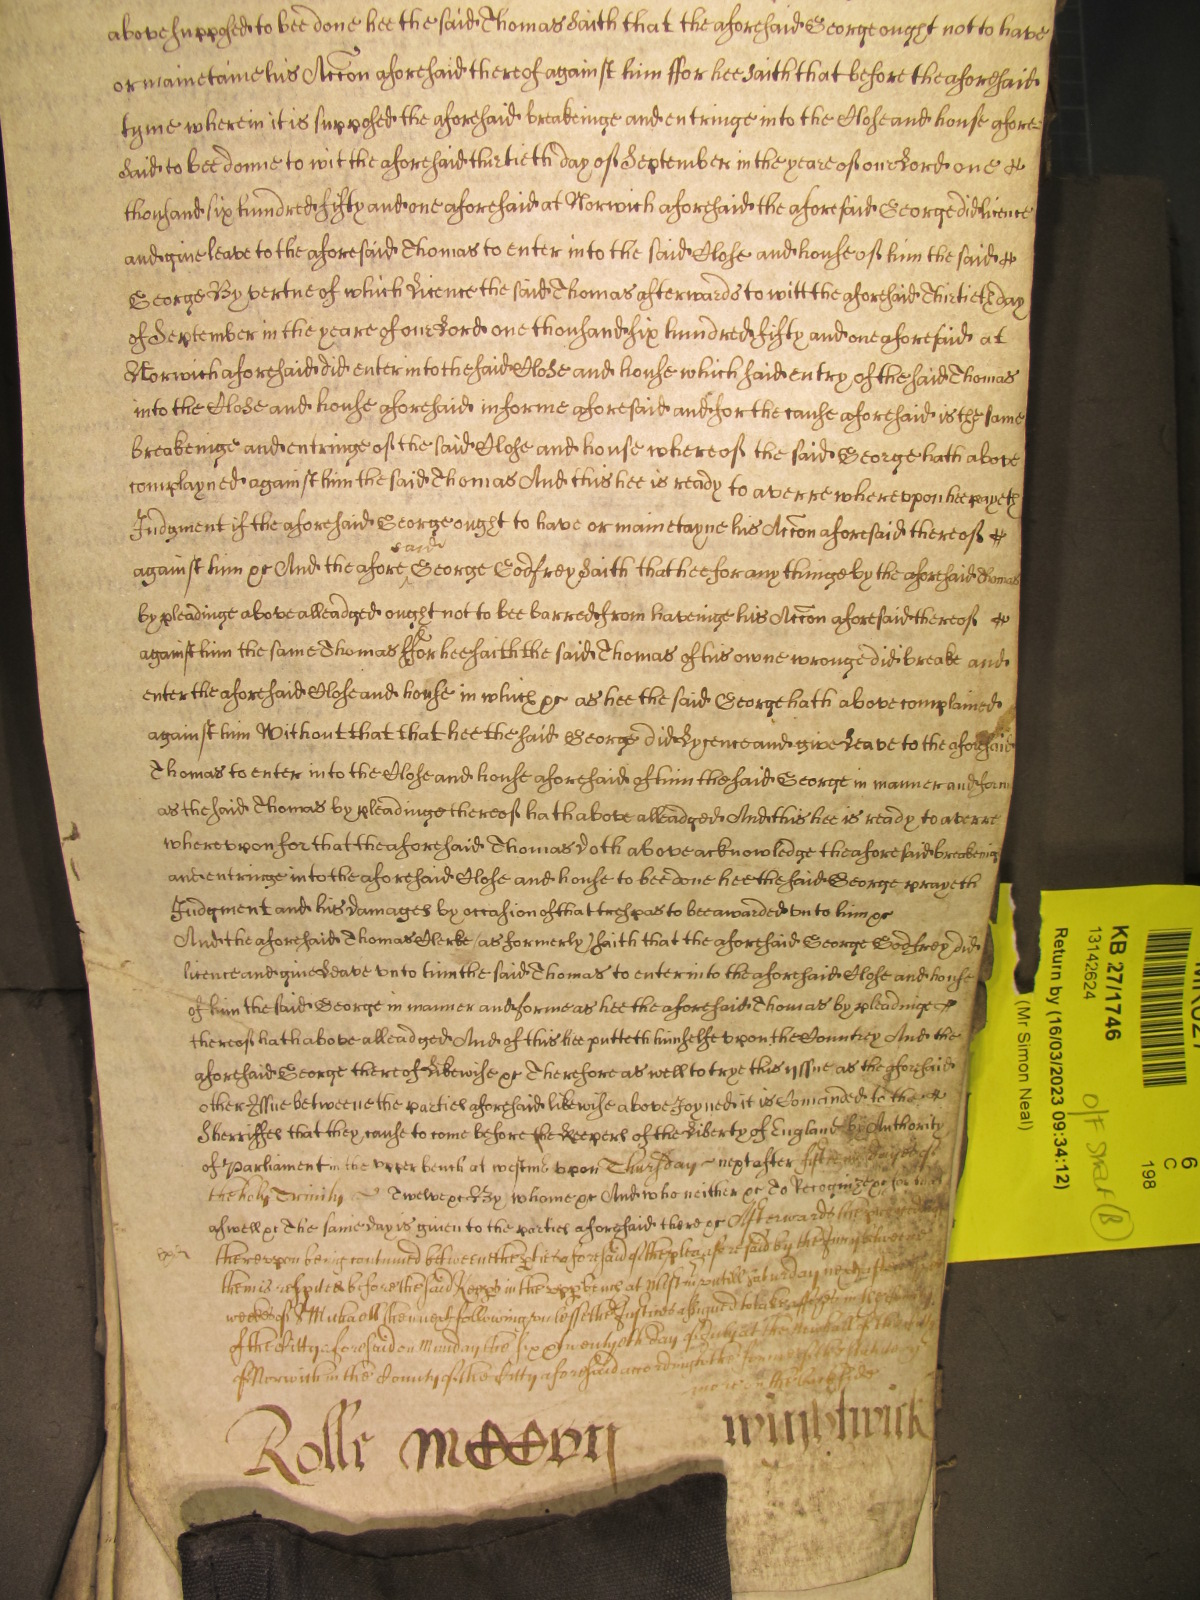 above supposed to bee done hee the said Thomas Saith that the aforesaid George ought not to have
or mainetaine his Accon aforesaid thereof against him ffor hee saith that before the aforesaid
tyme wherein it is supposed the aforesaid breakeinge and entringe into the Close and house afore
said to bee donne to wit the aforesaid thirtieth day of September in the yeare of our Lord one
thousand six hundred fifty and one aforesaid at Norwich aforesaid the aforesaid George did licence
and give leave to the aforesaid Thomas to enter into the said Close and house of him the said
George By vertue of which Licence the said Thomas afterwards to witt the aforesaid Thirtieth day
of September in the yeare of our Lord one thousand six hundred fifty and one aforesaid at
Norwich aforesaid did enter into the said Close and house which said entry of the said Thomas
into the Close and house aforesaid in forme aforesaid and for the cause aforesaid is the same
breakeinge and entringe of the said Close and house whereof the said George hath above
complayned against him the said Thomas And this hee is ready to averre whereupon hee prayeth
Judgment if the aforesaid George ought to have or mainetayne his Accon aforesaid thereof
against him &c And the afore said George Godfrey Saith that hee for any thinge by the aforesaid Thomas
by pleadinge above alleadged ought not to bee barred from haveinge his Accon aforesaid thereof
against him the same Thomas ffor hee saith the said Thomas of his owne wronge did breake and
enter the aforesaid Close and house in which &c as hee the said George hath above complained
against him Without that that hee the said George did Lycence and give Leave to the aforesaid
Thomas to enter into the Close and house aforesaid of him the said George in manner and form
as the said Thomas by pleadinge thereof hath above alleadged And this hee is ready to averre
whereupon for that the aforesaid Thomas doth above acknowledge the aforesaid breakeinge
and entringe into the aforesaid Close and house to bee done hee the said George prayeth
Judgment and his damages by occasion of that trespas to bee awarded unto him &c
And the aforesaid Thomas Clerke (as formerly) Saith that the aforesaid George Godfrey did
licence and give Leave unto him the said Thomas to enter into the aforesaid Close and house
of him the said George in manner and forme as hee the aforesaid Thomas by pleadinge
thereof hath above alleadged And of this hee putteth himselfe upon the Countrey And the
aforesaid George thereof Likewise &c Therefore as well to trye this yssue as the aforesaid
other Issue betweene the parties aforesaid likewise above Joyned it is Comanded to the
Sherriffes that they cause to come before the Keepers of the Liberty of England by Authority
of Parliament in the upper bench at westmr upon Thursday next after fifteene dayes of
the holy Trinity Twelve &c By whome &c And who neither &c To Recognize &c
aswell &c The same day is given to the parties aforesaid there &c Afterwards the
thereupon being continued betweene the pties aforesaid of the plea aforesaid by the Jury betweene
them is respited before the said Keeps in the upp bench at Westmr untill Saturday next after
weekes of St Michaell then next following unlesse the Justices assigned to take
of the Citty aforesaid on Munday the six & twentyeth day of July at the
of Norwich in the County of the Citty aforesaid according to the forme of the Statute
more on the back side
Rolle mccccvij wightwick
KB 27/1746
13142624
Return by (16/03/2023 09:34:12)
(Mr Simon Neal)
6
C
198